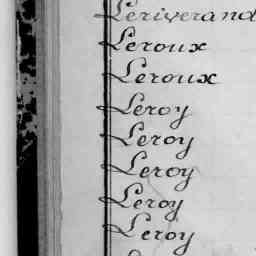 Leriverand
Leroux
Leroux
Leroy
Leroy
Leroy
Leroy
Leroy